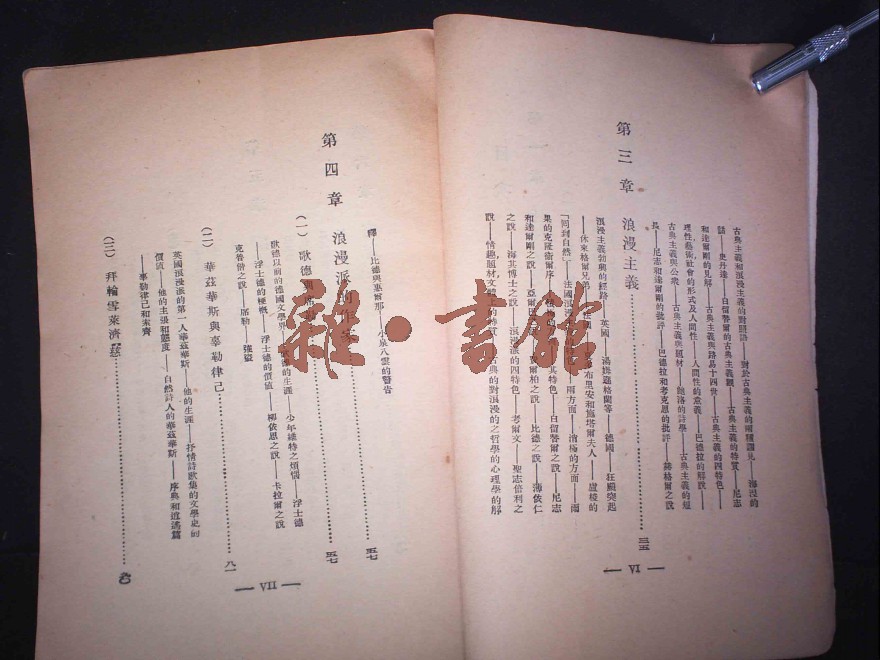 古典主義和浪漫主義的對照語——對於古典主義的兩種謬見——海涅的
話——史丹達——白留替爾的古典主義觀——古典主義的特質——尼志
和達爾剛的見解——古典主義與路易十四世——古典主義的四特色——
理性藝術社會的形式及人間性——人間性的意義——巴德拉的解說——
古典主義與公衆——古典主義與題材——鮑洛的詩學——古典主義的短
長——尼志和達爾剛的批評——巴德拉和考克思的批評——赫格爾之說
第三章 浪漫主義…………三五
浪漫主義勃興的經路——英國——德國——狂飈突起
——休來格爾兄弟——法國——布里安和斯塔爾夫人——盧梭的
「回到自然」——法國浪漫——兩方面——消極的方面——雨
果的克林威爾序——其特色——白留替爾之說——尼志
和達爾剛之說——亞爾——爾柏之說——比德之說——薄依仁
之說——海其博士之說——浪漫派的四特色——考爾文——聖志倍利之
說——情趣題材文體上的特質——古典的對浪漫的之哲學的心理學的解
— VI —
釋——比德與惠爾那——小泉八雲的警告…………五七
第四章 浪漫派的作家…………五七
(一) 歌德
歌德以前的德國文學界——歌德的生涯——少年維特之煩惱——浮士德
——浮士德的梗概——浮士德的價值——柳依思之說——卡拉爾之說
克魯偕之說——席勒——強盜
(二) 華茲華斯與辜勒律己…………八一
英國浪漫派的第一人華茲華斯——他的生涯——抒情詩歌集的文學史的
價值——他的主張和態度——自然詩人的華茲華斯——序典和逍遙篇
——辜勒律己和末齊
(三) 拜輪雪萊濟慈…………
— VII —
雜·書館